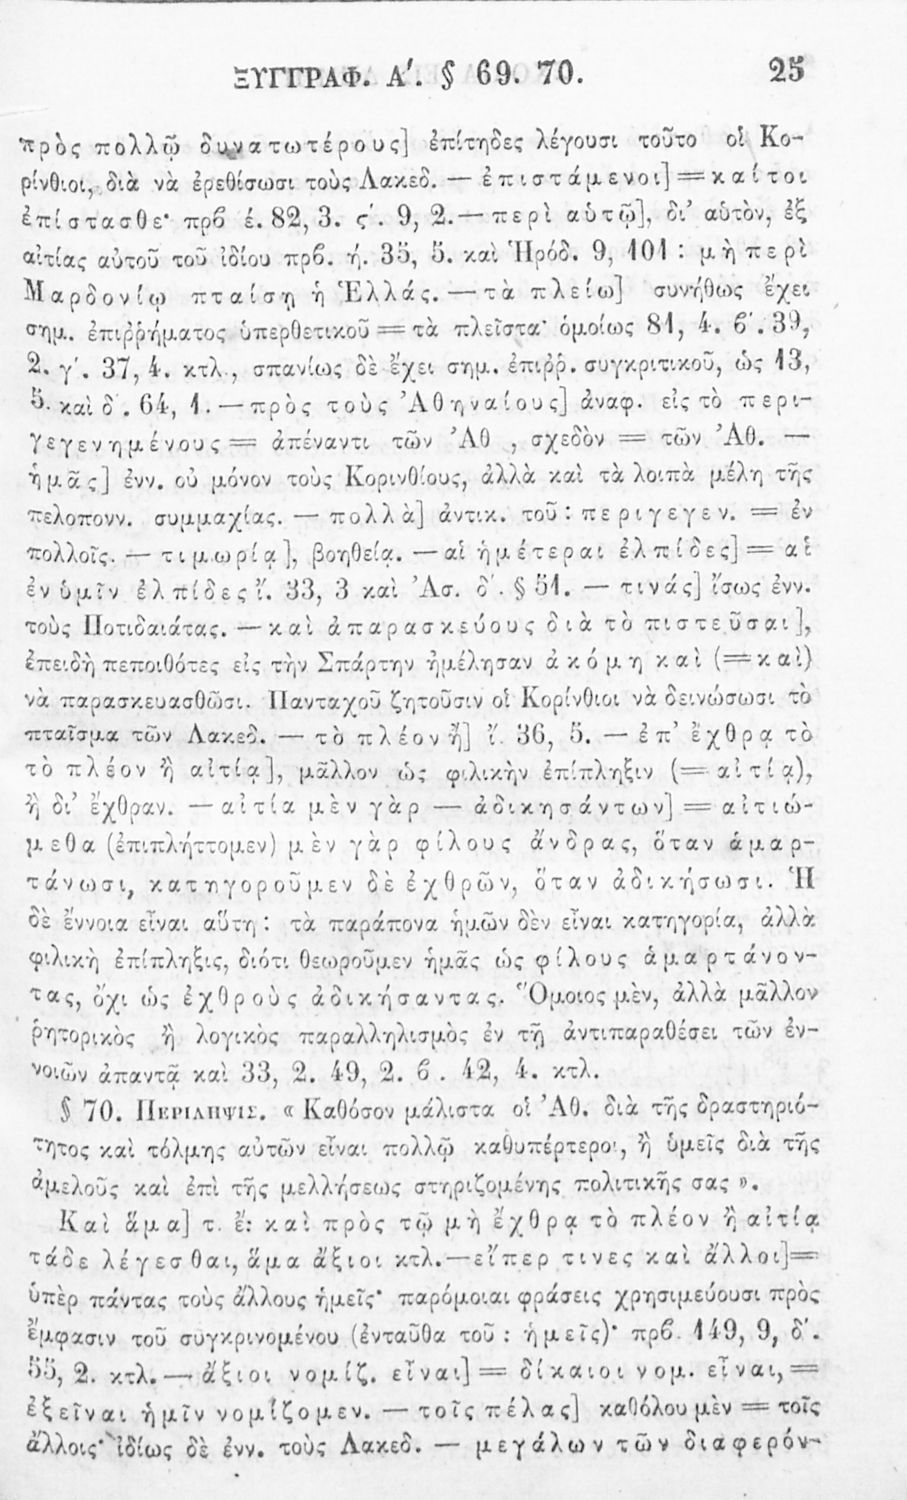 ΞΥΓΓΡΑΦ. Α΄. § 69. 70. 25
πρὸς πολλῷ δυνατωτέρους] ἐπίτηδες λέγουσι τοῦτο οἱ Κο-
ρίνθιοι, διὰ νὰ ἐρεθίσωσι τοὺς Λακεδ. — ἐπιστάμενοι] = καίτοι
ἐπίστασθε· πρβ έ. 82, 3. ς΄. 9, 2. — περὶ αὑτῷ], δι’ αὑτὸν, ἐξ
αἰτίας αὑτοῦ τοῦ ἰδίου πρβ. ή. 35, 5. καὶ Ἡρόδ. 9, 101 : μὴ περὶ
Μαρδονίῳ πταίσῃ ἡ Ἑλλάς. — τὰ πλείω] συνήθως ἔχει
σημ. ἐπιῤῥήματος ὑπερθετικοῦ = τὰ πλεῖστα· ὁμοίως 81, 4. β΄. 39,
2. γ΄. 37, 4. κτλ., σπανίως δὲ ἔχει σημ. ἐπιῤῥ. συγκριτικοῦ, ὡς 13,
5. καὶ δ΄. 64, 1. — πρὸς τοὺς Ἀθηναίους] ἀναφ. εἰς τὸ περι-
γεγενημένους = ἀπέναντι τῶν Ἀθ , σχεδὸν = τῶν Ἀθ. —
ἡμᾶς] ἐνν. οὐ μόνον τοὺς Κορινθίους, ἀλλὰ καὶ τὰ λοιπὰ μέλη τῆς
πελοπονν. συμμαχίας. — πολλὰ] ἀντικ. τοῦ : περιγεγεν. = ἐν
πολλοῖς. — τιμωρίᾳ], βοηθείᾳ. — αἱ ἡμέτεραι ἐλπίδες] = αἱ
ἐν ὑμῖν ἐλπίδες ἴ. 33, 3 καὶ Ἀσ. δ΄. § 51. — τινάς] ἴσως ἐνν.
τοὺς Ποτιδαιάτας. — καὶ ἀπαρασκεύους διὰ τὸ πιστεῦσαι],
ἐπειδὴ πεποιθότες εἰς τὴν Σπάρτην ἠμέλησαν ἀκόμη καὶ (= καὶ)
νὰ παρασκευασθῶσι. Πανταχοῦ ζητοῦσιν οἱ Κορίνθιοι νὰ δεινώσωσι τὸ
πταῖσμα τῶν Λακεδ. — τὸ πλέον ἢ] ἴ. 36, 5. — ἐπ’ ἔχθρᾳ τὸ
τὸ πλέον ἢ αἰτίᾳ], μᾶλλον ὡς φιλικὴν ἐπίπληξιν (= αἰτίᾳ),
ἢ δι’ ἔχθραν. — αἰτία μὲν γὰρ — ἀδικησάντων] = αἰτιώ-
μεθα (ἐπιπλήττομεν) μὲν γὰρ φίλους ἄνδρας, ὅταν ἁμαρ-
τάνωσι, κατηγοροῦμεν δὲ ἐχθρῶν, ὅταν ἀδικήσωσι. Ἡ
δὲ ἔννοια εἶναι αὕτη : τὰ παράπονα ἡμῶν δὲν εἶναι κατηγορία, ἀλλὰ
φιλικὴ ἐπίπληξις, διότι θεωροῦμεν ἡμᾶς ὡς φίλους ἁμαρτάνον-
τας, ὄχι ὡς ἐχθροὺς ἀδικήσαντας. Ὅμοιος μὲν, ἀλλὰ μᾶλλον
ῥητορικὸς ἢ λογικὸς παραλληλισμὸς ἐν τῇ ἀντιπαραθέσει τῶν ἐν-
νοιῶν ἀπαντᾷ καὶ 33, 2. 49, 2. β . 42, 4. κτλ.
§ 70. ΠΕΡΙΛΗΨΙΣ. « Καθόσον μάλιστα οἱ Ἀθ. διὰ τῆς δραστηριό-
τητος καὶ τόλμης αὐτῶν εἶναι πολλῷ καθυπέρτεροι, ἢ ὑμεῖς διὰ τῆς
ἀμελοῦς καὶ ἐπὶ τῆς μελλήσεως στηριζομένης πολιτικῆς σας ».
Καὶ ἅμα] τ. ἔ: καὶ πρὸς τῷ μὴ ἔχθρᾳ τὸ πλέον ἢ αἰτίᾳ
τάδε λέγεσθαι, ἅμα ἄξιοι κτλ. — εἴπερ τινες καὶ ἄλλοι] =
ὑπὲρ πάντας τοὺς ἄλλους ἡμεῖς· παρόμοιαι φράσεις χρησιμεύουσι πρὸς
ἔμφασιν τοῦ συγκρινομένου (ἐνταῦθα τοῦ : ἡμεῖς)· πρβ. 149, 9, δ΄.
55, 2. κτλ. — ἄξιοι νομίζ. εἶναι] = δίκαιοι νομ. εἶναι, =
ἐξεῖναι ἡμῖν νομίζομεν. — τοῖς πέλας] καθόλου μὲν = τοῖς
ἄλλοις· ἰδίως δὲ ἐνν. τοὺς Λακεδ. — μεγάλων τῶν διαφερόν-